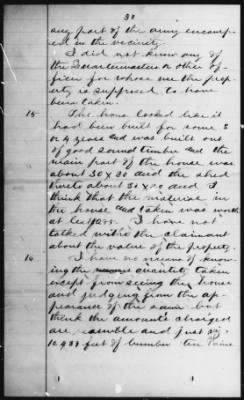 31
any part of the army encamp-
ed in the vicinity.
I did not know any of
the Quartermasters or other of-
ficer for whose use the prop-
erty is supposed to have
been taken.
15 The house looked like it
had been built for some 3
or 4 years and was built out
of good sound timber and the
main part of the house was
about 30 x 30 and the shed
rooms about 30 x 20 and I
think that the material in
the house and taken was worth
at least I have not
talked with the claimant
about the value of the property.
16 I have no means of know-
ing the quantity taken
except from seeing the house
and judging from the ap-
pearance of the same but
think the amounts charged
are and just viz.
feet of lumber ten